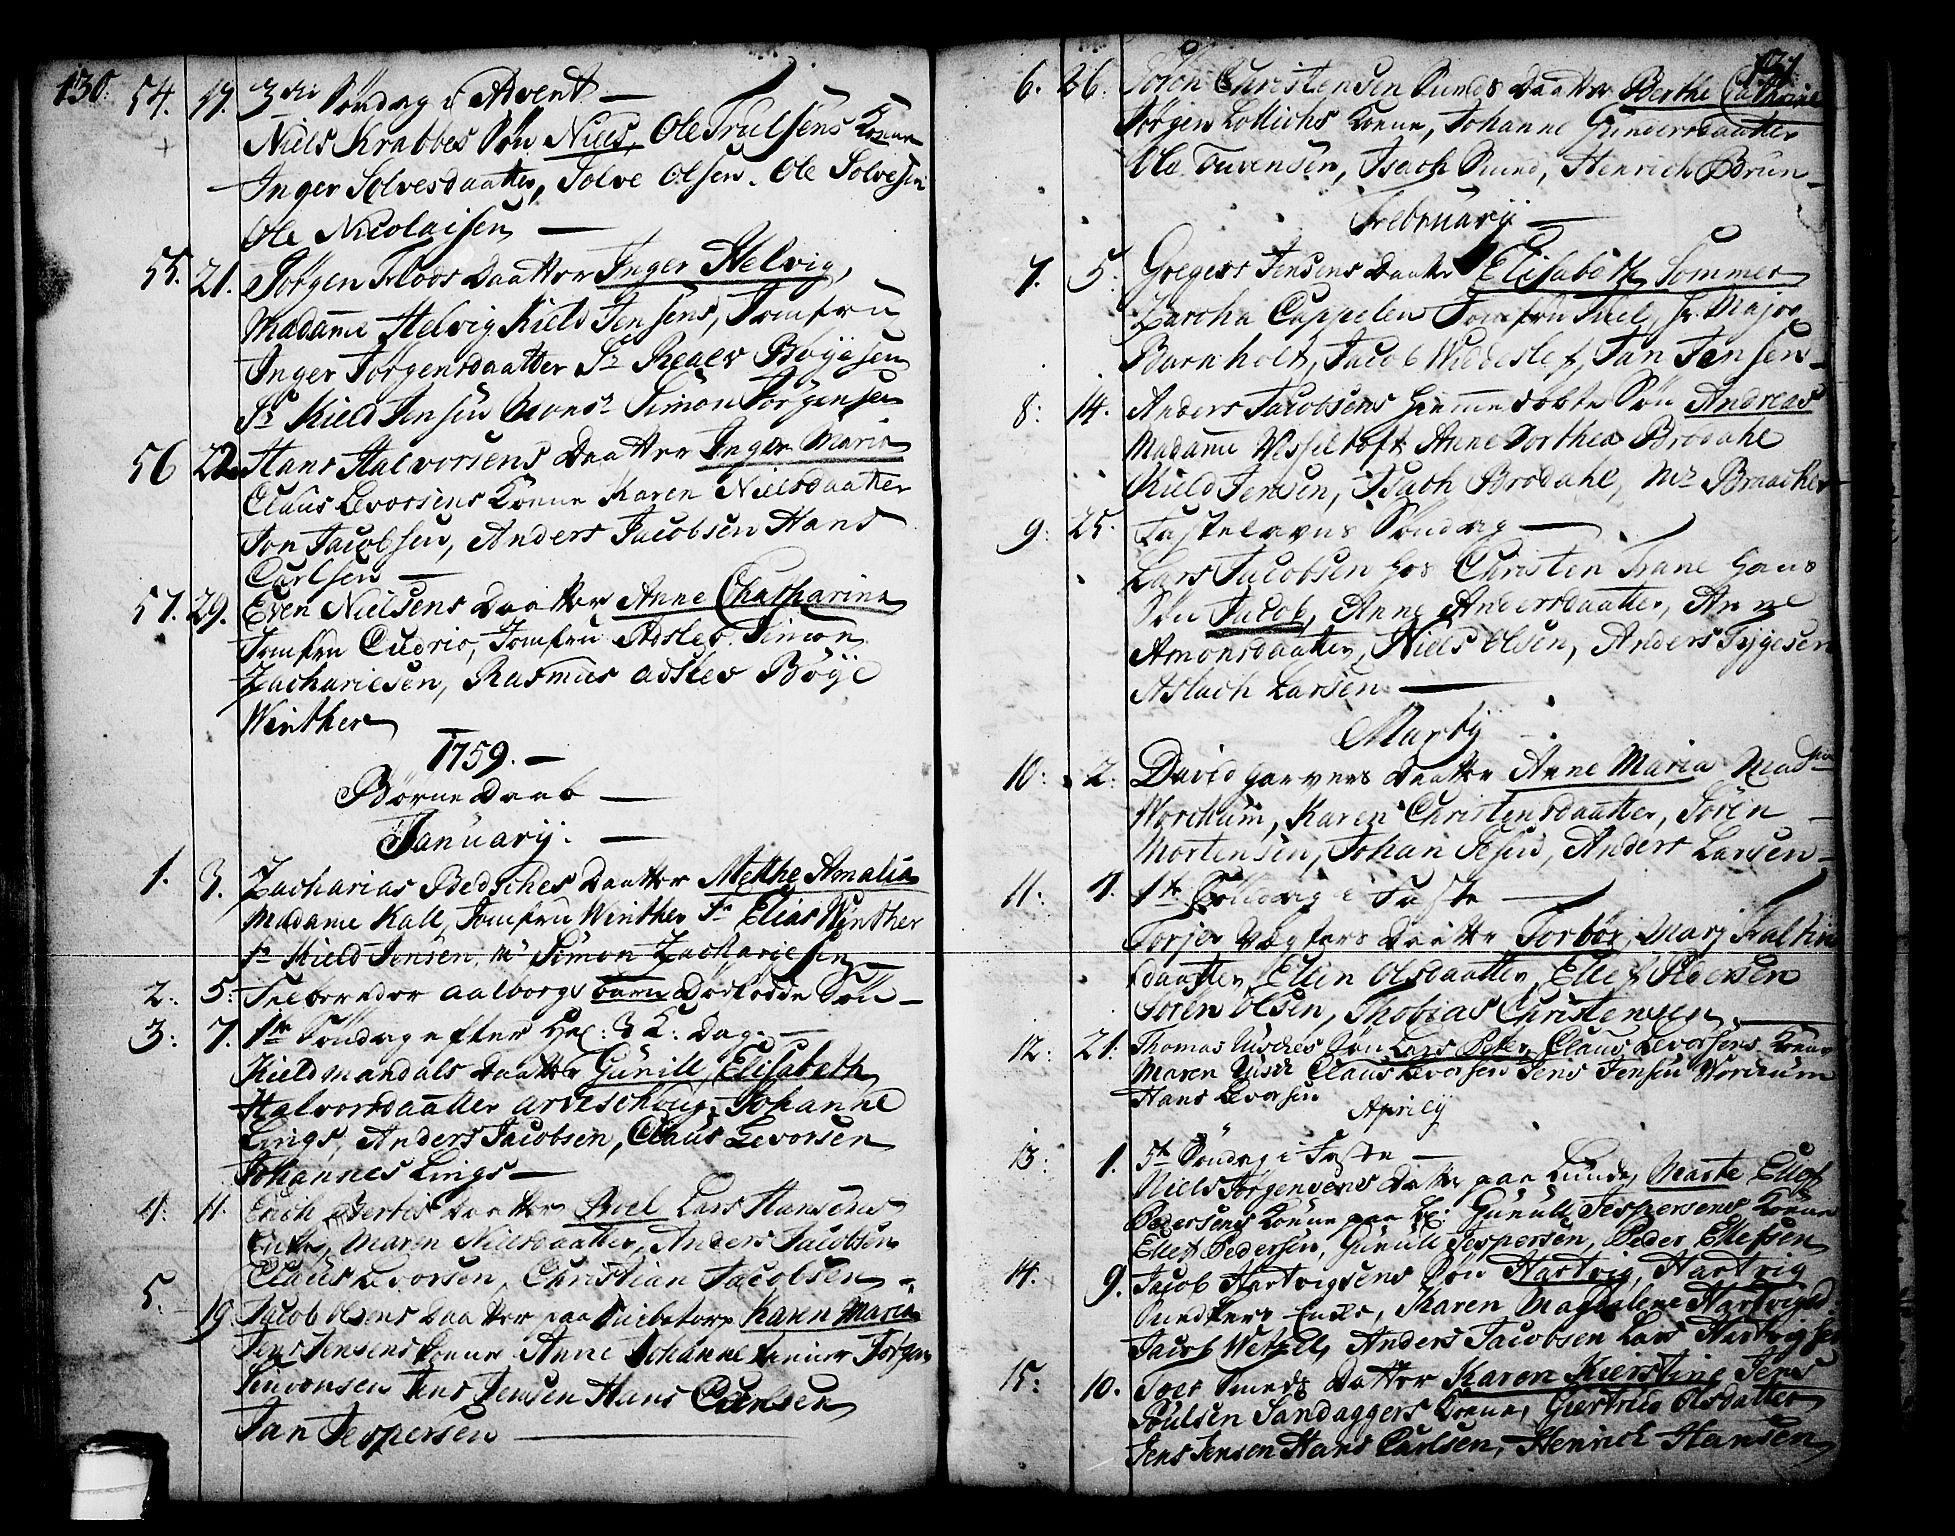 130.
54. 17. 3die Søndag i Advent
Niels Krabbes Søn Niels, Ole Trulsens Konne
Inger Solvesdaatter, Solve Olsen. Ole Solvesen
Ole Nicolaisen
55. 21. Jørgen Floos Daatter Inger Helvig,
Madame Helvig Kield Jensens, Jomfru
Inger Jørgensdaatter Sr Boyesen
Sr Kield Jensen Monsr Simon Jørgensen
56 22. Hans Halvorsens Daatter Inger Maria
Claus Levorsens Konne Karen Nielsdaatter
Jon Jacobsen, Anders Jacobsen Hans
Carlsen
57. 29. Even Nielsens Daatter Anne Chatharina
Jomfru Cudrio, Jomfru Adsler. Simon
Zachariesen, Rasmus Adsler Böye
Winther
1759.
Børne Daab
January.
1. 3. Zacharias Bedsches Daatter Mette Amalia
Madame Kall, Jomfru Winther Sr Elias Winther
Sr Kield Jensen, Mr Simon Zachariesen
2. 5. aalborgs barn dødfødde Søn
3. 7. 1ste Søndag efter Hel: 3 K: Dag.
Kield mandals Daatter Gunill, Elisabeth
Halvorsdaatter Johanne
Lings, Anders Jacobsen, Claus Levorsen
Johannes Lings
4. 11. Erich Daatter Lars Hansens
Enke, Maren Nielsdaatter, Anders Jacobsen
Claus Levorsen, Christian Jacobsen
5. 19 Jacob Olsens Daatter paa Karen Maria
Jens Jensens Konne Anne Johanne Jørgen
Simonsen Jens Jensen Hans Carlsen
Jan Jespersen
131
6. 26. Søren Christensen Smeds Daatter Berthe Cathrine
Jørgen Lollichs Konne, Johanne Gundersdaatter
Ole Isach Smed, Henrich Brun
February
7. 5. Gregers Jensens Daatter Elisabeth Sommer
Cappelen Jomfru Juel, Hr Major
Barnholt, Jacob Wideslef, Jan Jensen
8. 14. Anders Jacobsens hiemme døbte Søn Andreas
Madame Wesseltoft Anne Dorthea Brodahl
Kield Jensen, Isach Brodahl, Mr Braacher
9. 25. Fastelavns Søndag
Lars Jacobsen hos Christen Trane hans
Søn Jacob, Anne Andersdaatter, Anne
Amonsdaatter, Niels Olsen, Anders Tygesen
Aslach Larsen
Marty
10. 2. David Garvers Daatter Anne Maria Madme
Worchum, Karen Christensdaatter, Sören
Mortensen, Johan Anders Larsen
11. 4. 1te Söndag i Faste
Torjer Vægters Daatter Torbör, Marj Faltin
daatter, Ellin Olsdaatter, Ellef Pedersen
Sören Olsen, Thobias Christensen
12. 21. Thomas Lusches Søn Lars Peter, Claus Levorsens Konne
Maren Claus Levorsen Jens Jensen Worchum
Hans Levorsen
Aprily
13. 1. 5te Søndag i Faste
Niels Jørgensens Datter paa Lunde, Marte, Ellef
Pedersens Konne Gunild Jespersens Konne
Ellef Pedersen, Gunull Jespersen, Peder Ellefsen
14. 9. Jacob Hartvigsens Søn Hartvig, Hartvig
Enke, Karen Magdalene Hartvigsd
Jacob Wetzel, Anders Jacobsen Lars Hartvigsen
15. 10. Toer Smeds Datter Karen Kierstine Jens
Poulsen Sandaggers Konne, Giertrud Olsdatter
Jens Jensen Hans Carlsen, Henrich Hansen